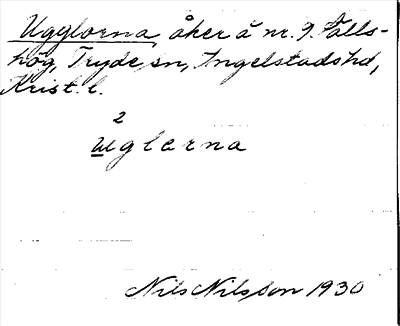 Ugglorna, åker å nr. 9. Falls-
hög, Tryde sn, Ingelstads hd,
Krist. l.
2
uglorna
Nils Nilsson 1930